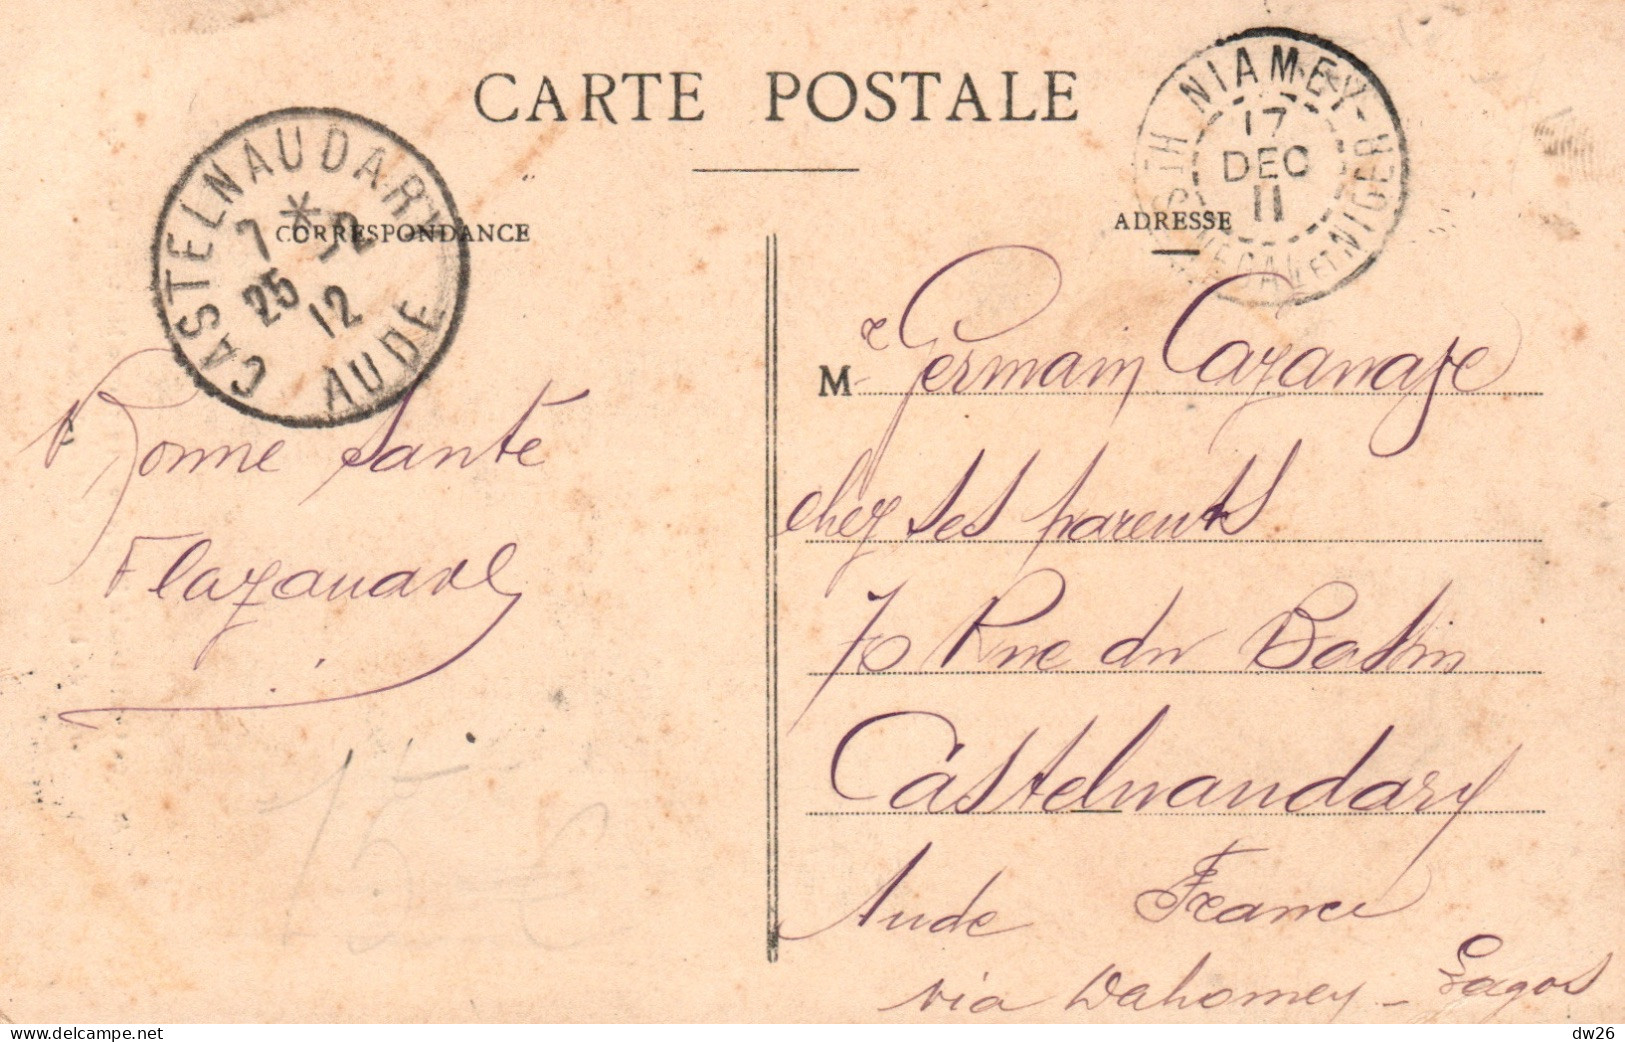 CARTE POSTALE
CASTELNAUDARY
7 * 12
25 12
AUDE
NIAMEY
17
DEC
11
ET NIGER
CORRESPONDANCE
ADRESSE
Bonne santé
M r Germain Cazanave
chez ses parents
70 Rue du Bassin
Castelnaudary
Aude France
via Dahomey - Lagos
15 €
dw26